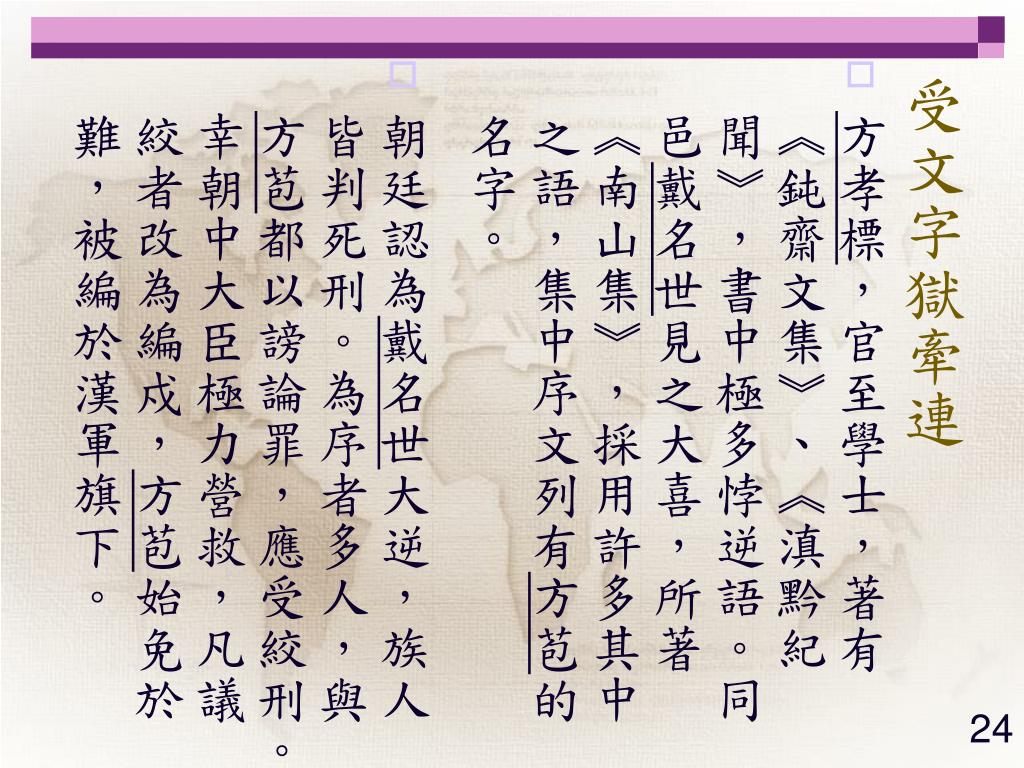 受文字獄牽連
方孝標，官至學士，著有
《鈍齋文集》、《滇黔紀
聞》，書中極多悖逆語。同
邑戴名世見之大喜，所著
《南山集》，採用許多其中
之語，集中序文列有方苞的
名字。
朝廷認為戴名世大逆，族人
皆判死刑。為序者多人，與
方苞都以謗論罪，應受絞刑。
幸朝中大臣極力營救，凡議
絞者改為編戍，方苞始免於
難，被編於漢軍旗下。
24